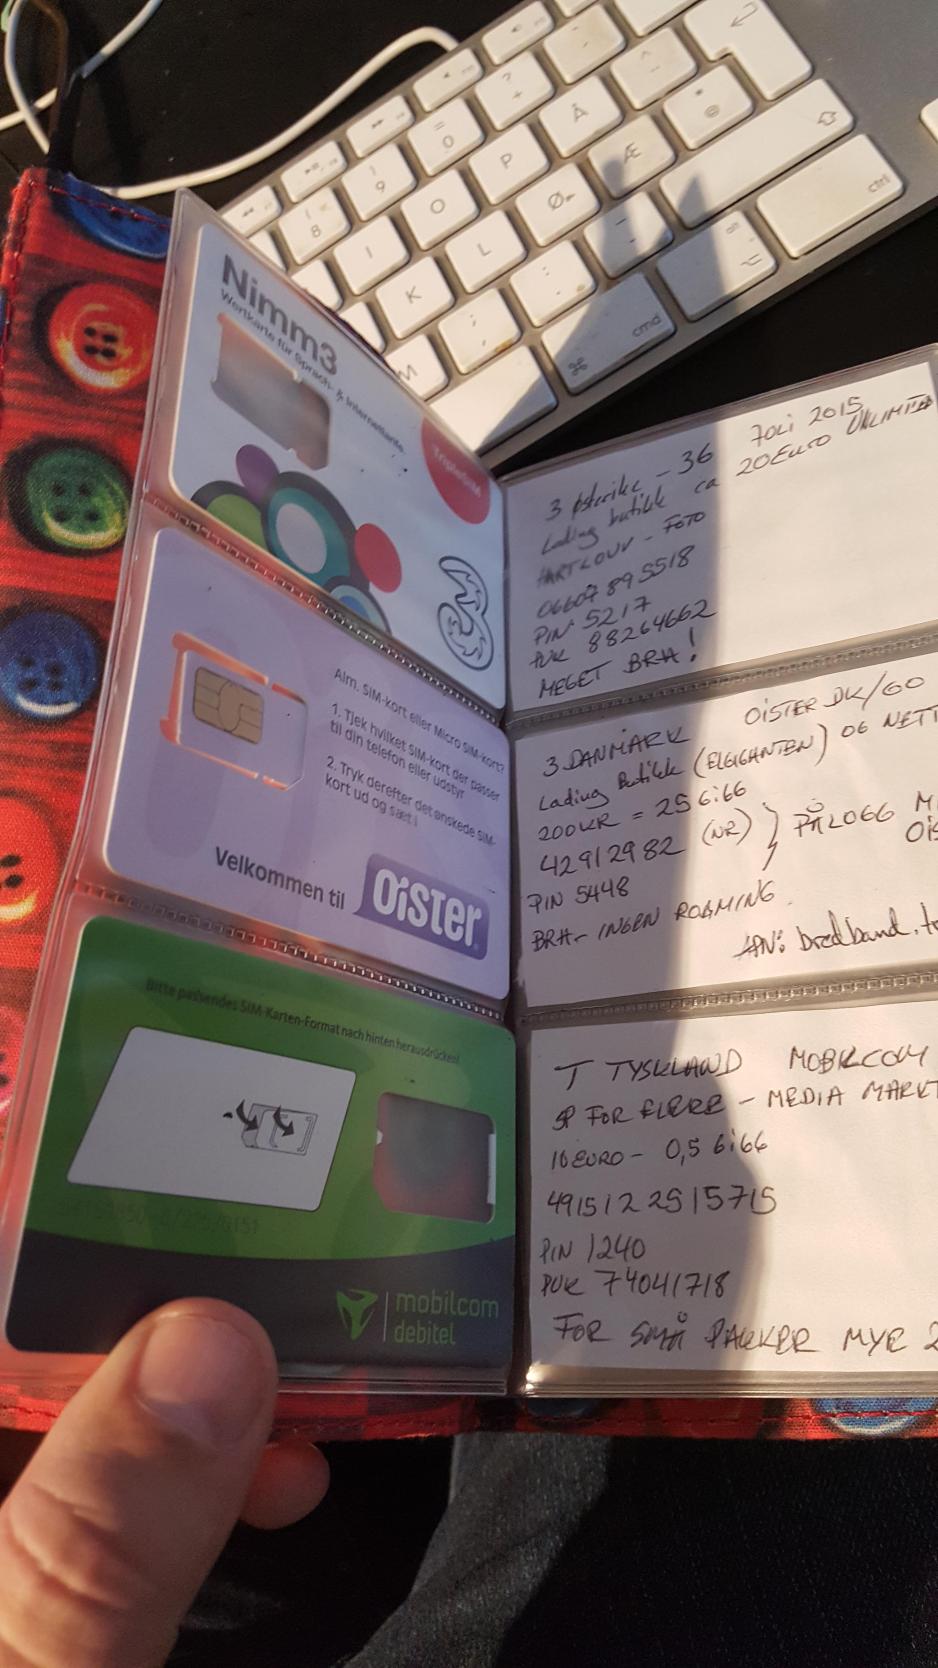 Nimm3
Wertkarte für Sprach- & Internettarife
TripleSIM
3
Alm. SIM-kort eller Micro SIM-kort?
1. Tjek hvilket SIM-kort der passer
til din telefon eller udstyr
2. Tryk derefter det ønskede SIM-
kort ud og sæt i
Velkommen til
OiSTER
Bitte passendes SIM-Karten-Format nach hinten herausdrücken!
mobilcom
debitel
3 Østerike - 36 JULI 2015
Lading butikk ca 20 Euro UNLIMITED
HARTLOUV - FOTO
06607895518
PIN 5217
PUK 88264662
MEGET BRA!
3 DANMARK OiSTER DK/GO
Lading Butikk (ELGIGANTEN) OG NETT
200KR = 25 Gi66
42912982 (NR) } PÅLOGG
PIN 5448
BRA - INGEN ROAMING
APN: bredband.
T TYSKLAND MOBILCOM
SP FOR FLERE - MEDIA MARKT
10 EURO - 0,5 Gi66
4915122515715
PIN 1240
PUK 74041718
FOR SMÅ PAKKER MYE
8 9 0 + ?
I O P Å
K L Ø Æ
M ; : -
⌘ cmd alt ⌥ ctrl